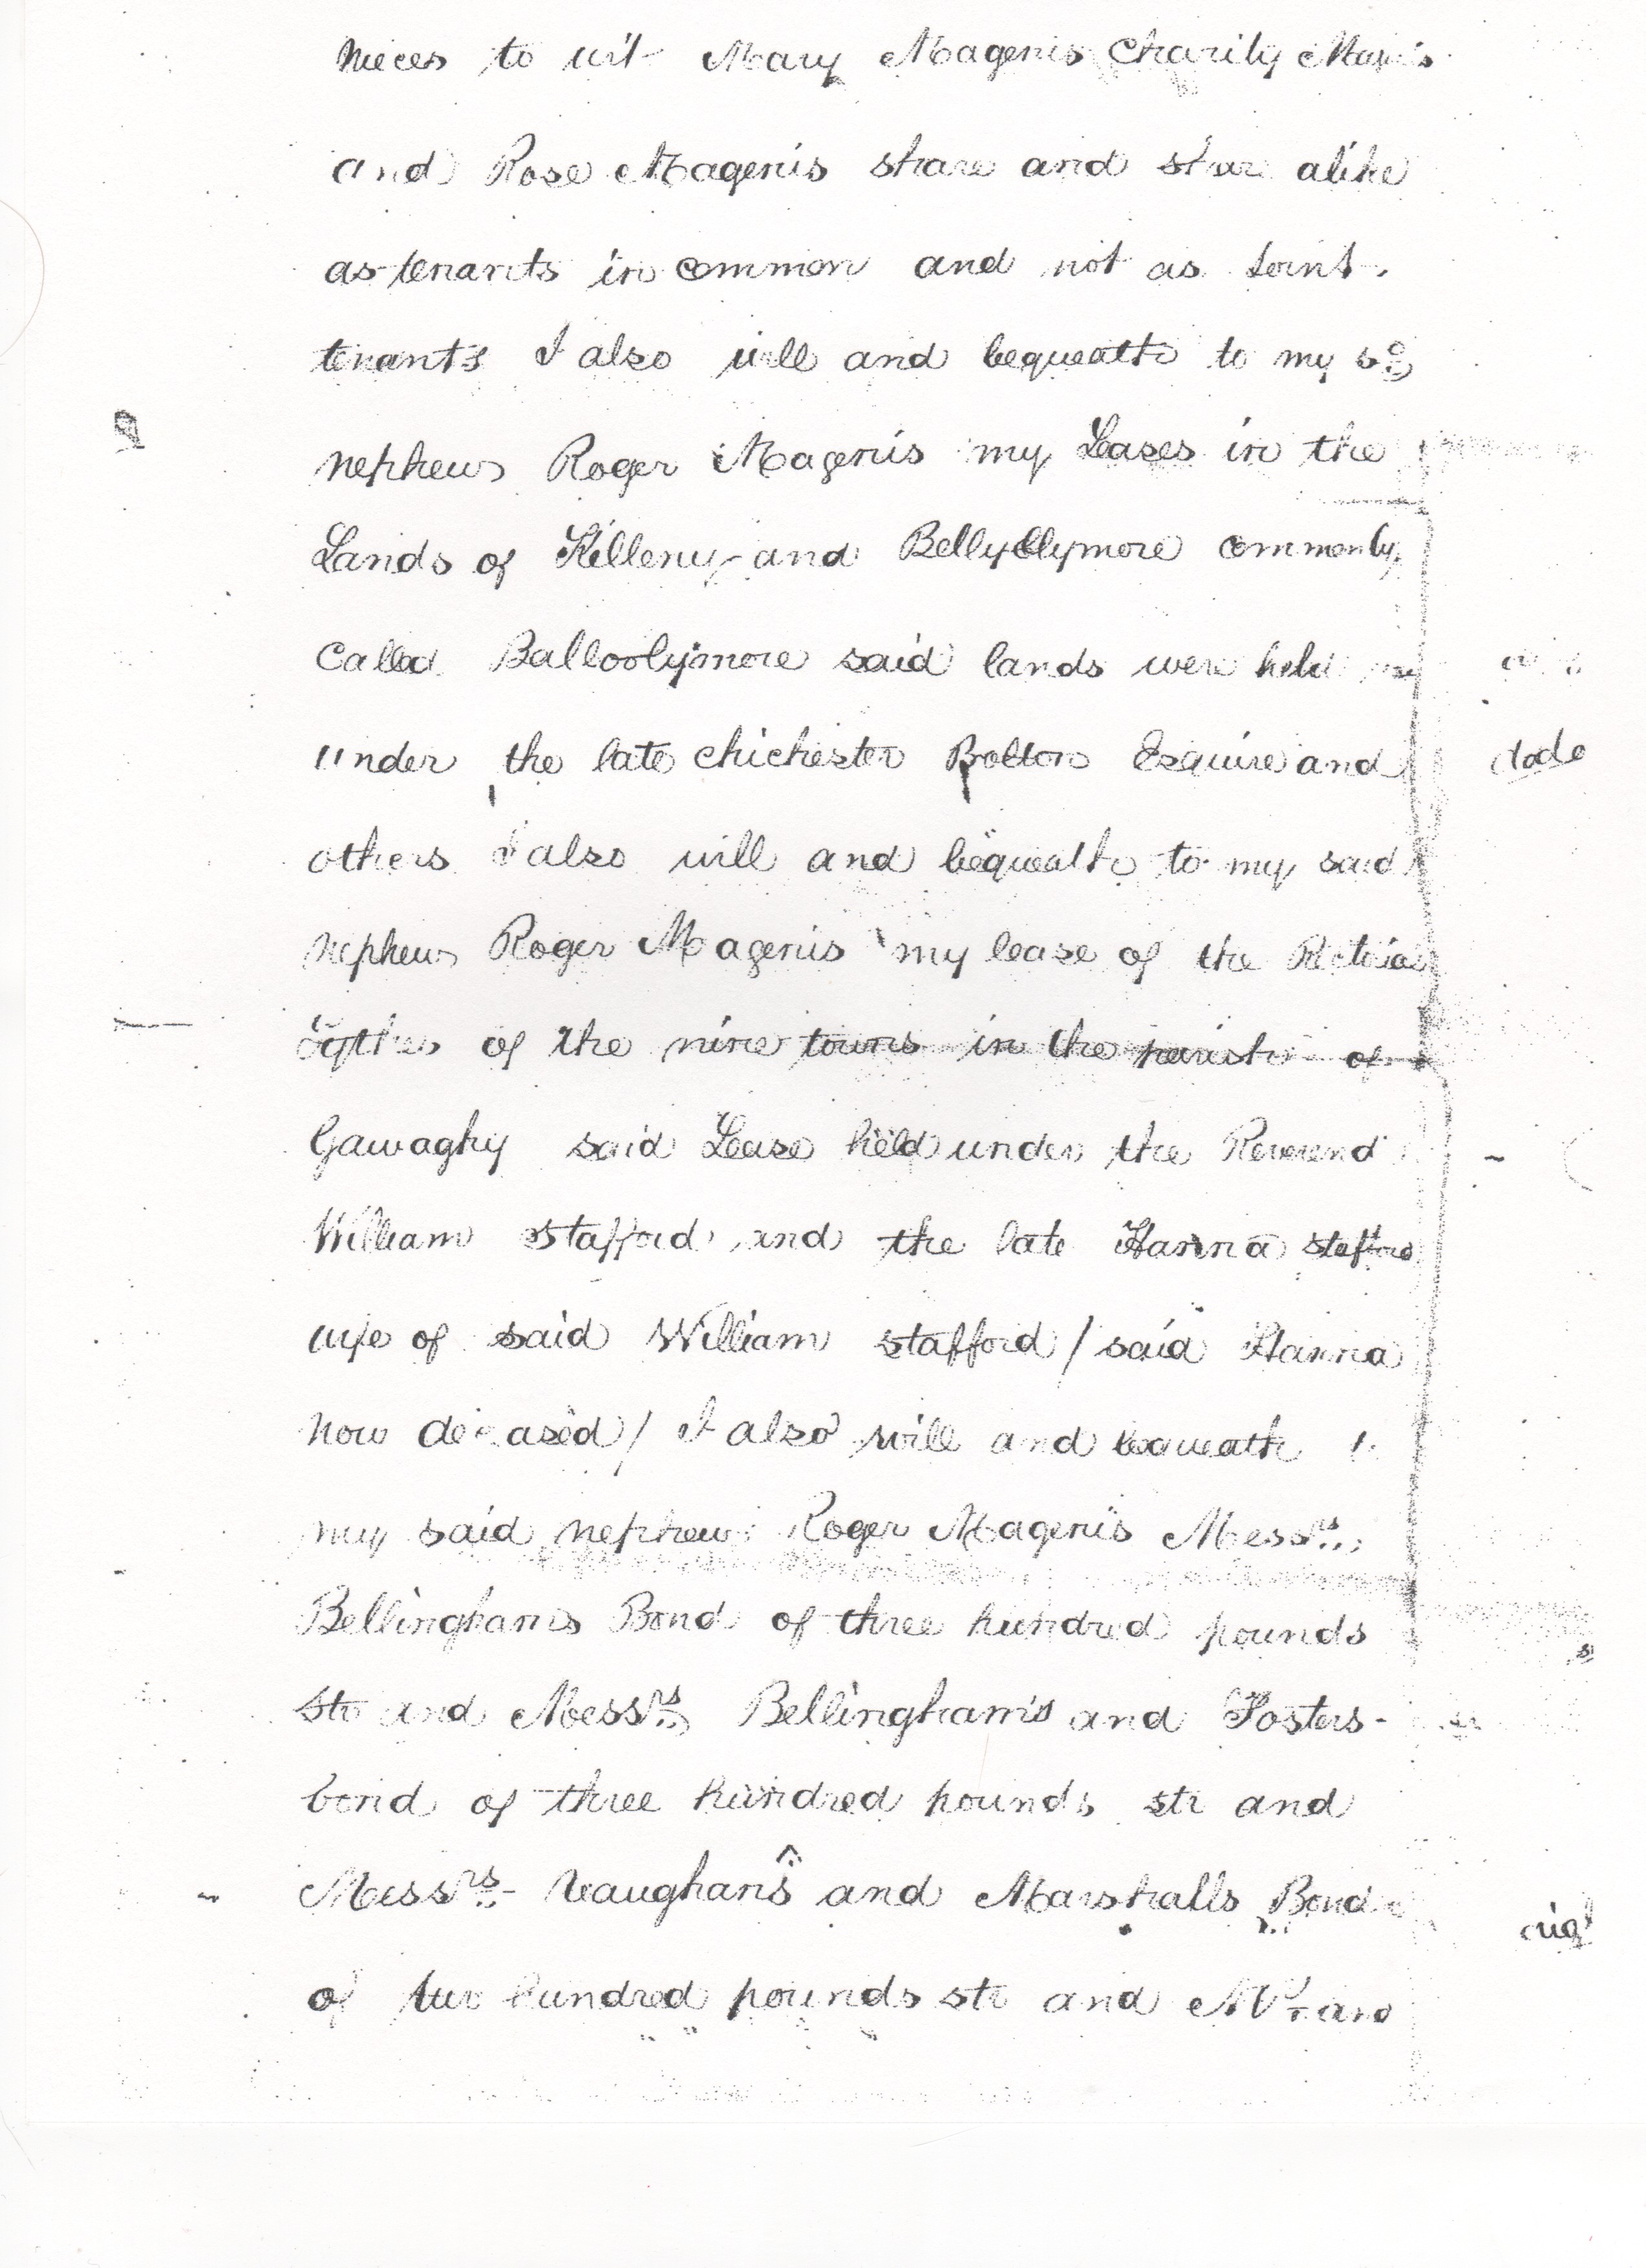 Nieces to wit Mary Magenis Charity
and Rose Magenis share and share alike
as tenants in common and not as Joint
tenants I also will and bequeath to my sd
nephew Roger Magenis my Leases in the
Lands of Killeny and Bellyellymore commonly
Called Balloolymore said lands were held
under the late Chichester Bolton Esquire and
others I also will and bequeath to my said
nephew Roger Magenis my lease of the
of the nine towns in the parish of
Gawaghy said Lease held under the Reverend
William Stafford and the late Hanna Stafford
wife of said William Stafford / said Hanna
now deceased / I also will and bequeath
my said nephew Roger Magenis Messrs
Bellinghams Bond of three hundred pounds
str and Messrs Bellinghams and Fosters
bond of three hundred pounds str and
Messrs Vaughans and Marshalls Bond
of two hundred pounds str and